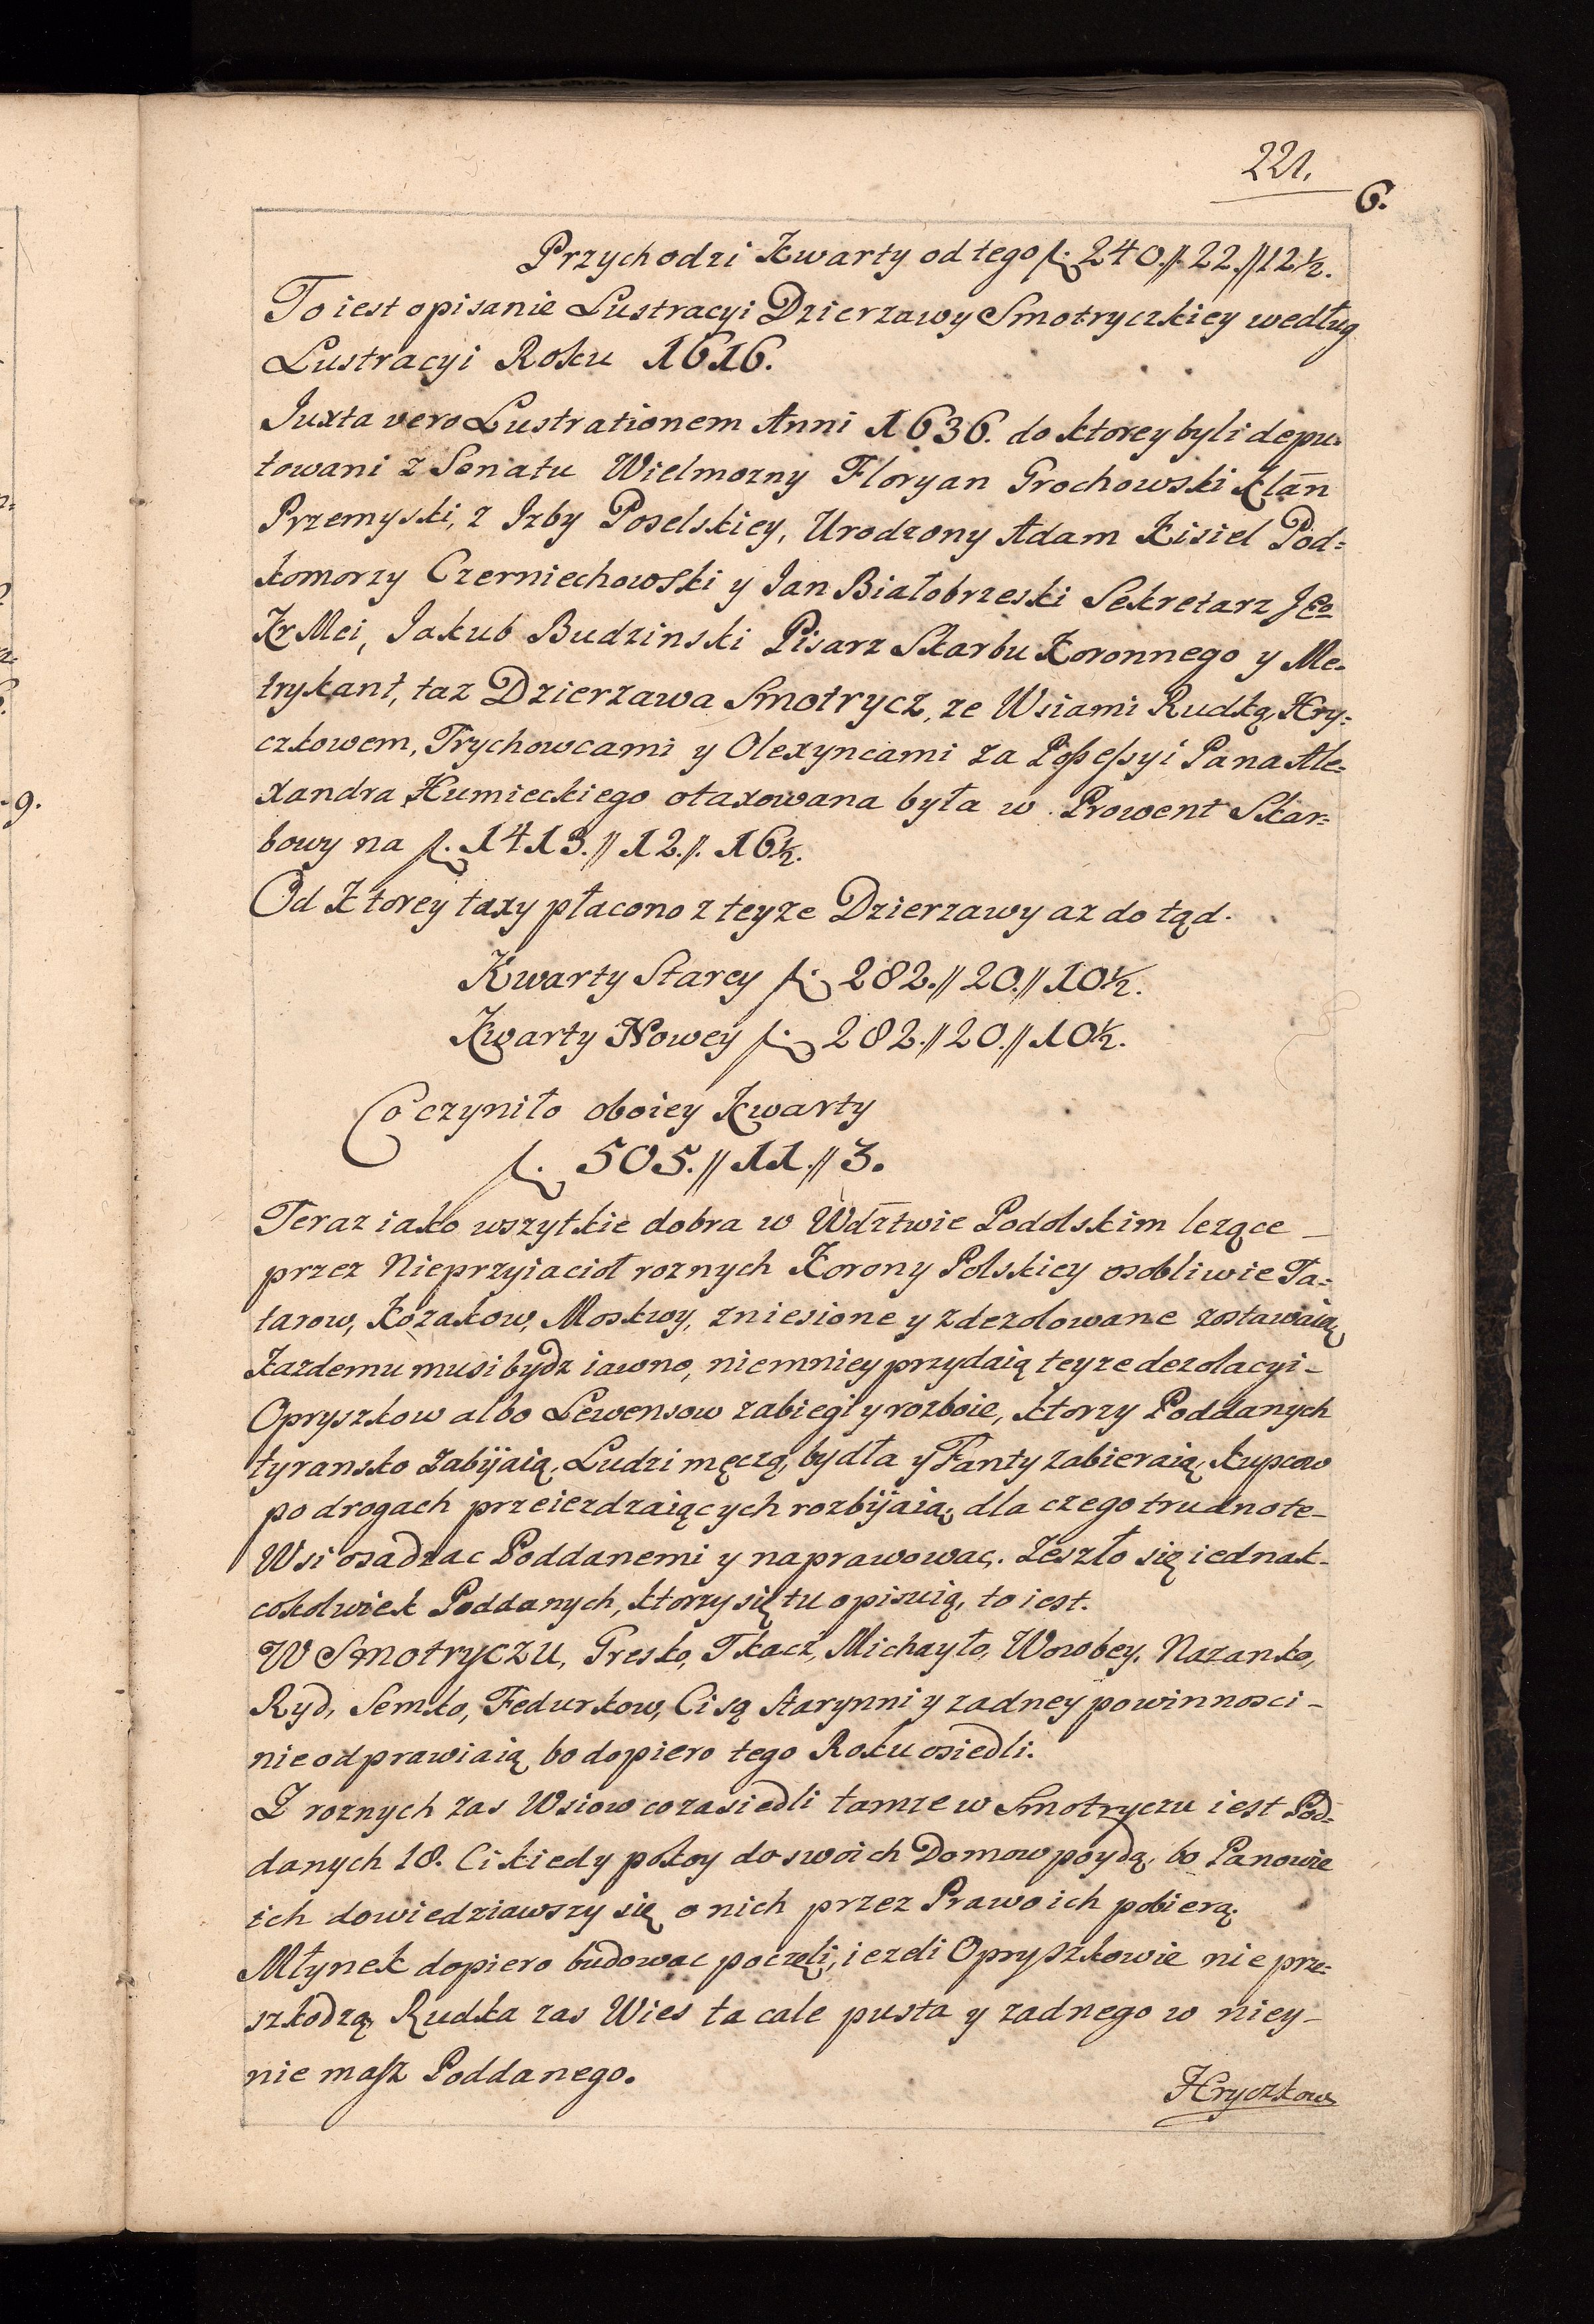 221.
6.
Przychodzi Kwarty od tego f. 240.//.22.//12½.
To iest opisanie Lustracyi Dzierzawy Smotryczkiey według
Lustracyi Roku 1616.
Juxta vero Lustrationem Anni 1636. do ktorey byli depu-
towani z Senatu Wielmozny Floryan Grochowski Kłan
Przemyski, z Jzby Poselskiey, Urodzony Adam Kisiel Pod=
komorzy Czerniechowski y Jan Białobrzeski Sekretarz Jeo
Kr Mci, Jakub Budzinski Pisarz Skarbu Koronnego y Me-
trykant, taz Dzierzawa Smotrycz, ze Wsiami Rudką, Hry=
czkowem, Trychowcami y Olexyncami za Possessyi Pana Ale=
xandra Humieckiego otaxowana była w Prowent Skar=
bowy na f. 1413.//12.//.16½.
Od Ktorey taxy płacono z teyze Dzierzawy az do tąd.
Kwarty Starey f. 282.//20.//10½.
Kwarty Nowey f. 282.//20.//10½.
Co czyniło oboiey Kwarty
f. 505.//11.//3.
Teraz iako wszytkie dobra w Wdztwie Podolskim lezące –
przez Nieprzyiacioł roznych Korony Polskiey osobliwie Ta=
tarow, Kozakow, Moskwy, zniesione y zdezolowane zostawaią,
Kazdemu musi bydz iawno, niemniey przydaią teyze dezolacyi –
Opryszkow albo Lewensow zabiegi y rozboie, ktorzy Poddanych
tyransko zabijaią, Ludzi męczą, bydła y Fanty zabieraią, kupcow
po drogach przeiezdzaiących rozbijaią, dla czego trudno te –
Wsi osadzac Poddanemi y naprawowac. Zeszło się iednak –
cokolwiek Poddanych, ktorzy się tu opisuią, to iest.
W Smotryczu, Gresko, Tkacz, Michayło, Worobey, Nazanko,
Ryd, Semko, Fedurkow, Ci są starynni y zadney powinnosci –
nieodprawiaią, bo dopiero tego Roku osiedli.
Z roznych zas Wsiow co zasiedli tamze w Smotryczu iest Pod=
danych 18. Ci kiedy pokoy do swoich Domow poydą, bo Panowie
ich dowiedziawszy się o nich przez Prawo ich pobierą.
Młynek dopiero budowac poczęli, iezeli Opryszkowie nie prze=
szkodzą, Rudka zas Wies ta cale pusta y zadnego w niey –
nie masz Poddanego.
Hryczkow